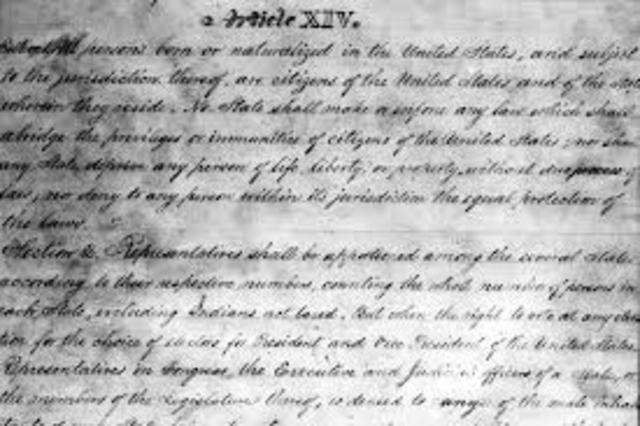 Article XIV.
All persons born or naturalized in the United States, and subject
to the jurisdiction thereof, are citizens of the United States and of the State
wherein they reside. No State shall make or enforce any law which shall
abridge the privileges or immunities of citizens of the United States; nor shall
any State deprive any person of life, liberty, or property, without due process of
law; nor deny to any person within its jurisdiction the equal protection of
the laws
Section 2. Representatives shall be apportioned among the several States
according to their respective numbers, counting the whole number of persons in
each State, excluding Indians not taxed. But when the right to vote at any elec
tion for the choice of electors for President and Vice President of the United States,
Representatives in Congress, the Executive and Judicial officers of a State, or
the members of the Legislature thereof, is denied to any of the male inhab